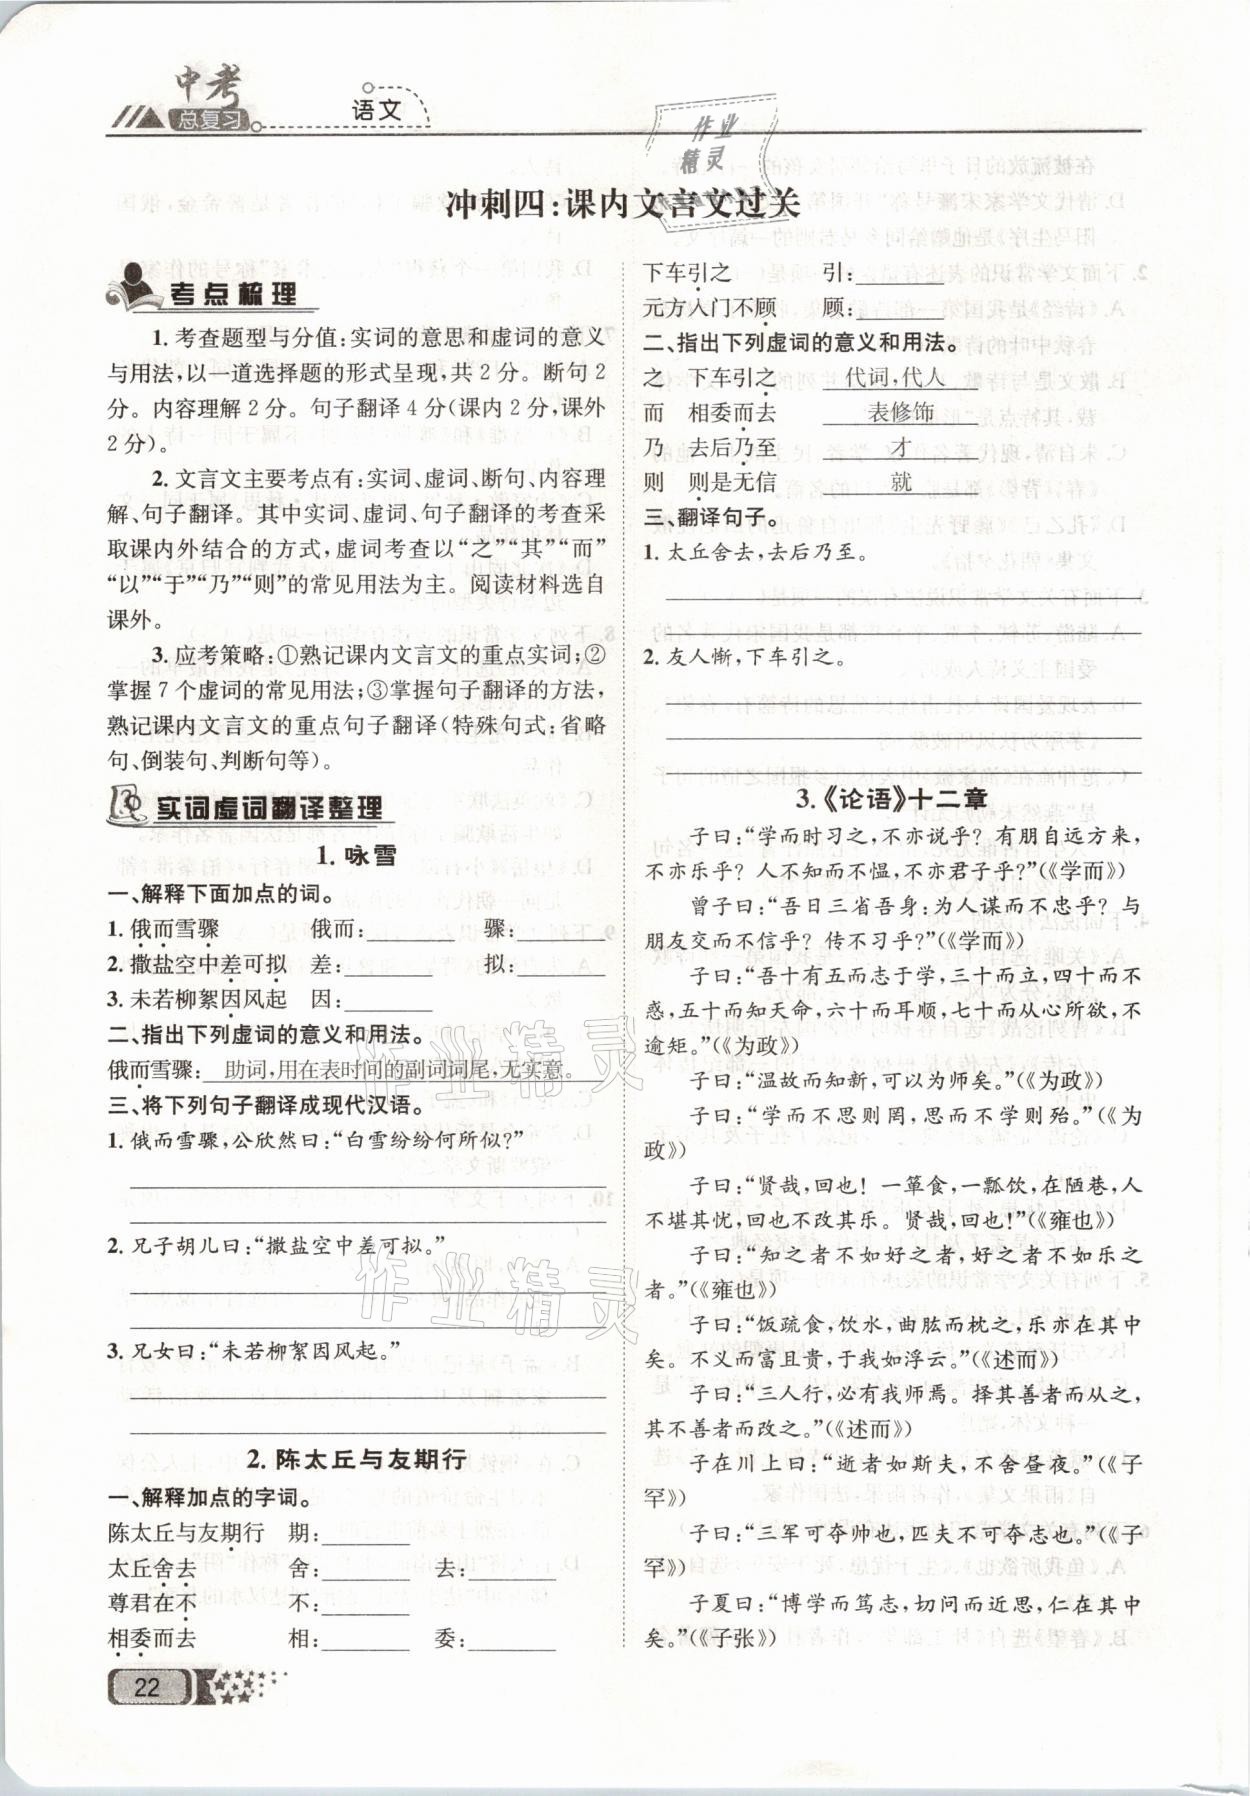 中考
总复习
语文
作业
精灵
冲刺四:课内文言文过关
考点梳理
1.考查题型与分值:实词的意思和虚词的意义
与用法,以一道选择题的形式呈现,共2分。断句2
分。内容理解2分。句子翻译4分(课内2分,课外
2分)。
2.文言文主要考点有:实词、虚词、断句、内容理
解、句子翻译。其中实词、虚词、句子翻译的考查采
取课内外结合的方式,虚词考查以“之”“其”“而”
“以”“于”“乃”“则”的常见用法为主。阅读材料选自
课外。
3.应考策略:①熟记课内文言文的重点实词;②
掌握7个虚词的常见用法;③掌握句子翻译的方法,
熟记课内文言文的重点句子翻译(特殊句式:省略
句、倒装句、判断句等)。
实词虚词翻译整理
1.咏雪
一、解释下面加点的词。
1.俄而雪骤 俄而: 骤:
2.撒盐空中差可拟 差: 拟:
3.未若柳絮因风起 因:
二、指出下列虚词的意义和用法。
俄而雪骤: 助词,用在表时间的副词词尾,无实意。
三、将下列句子翻译成现代汉语。
1.俄而雪骤,公欣然曰:“白雪纷纷何所似?”
2.兄子胡儿曰:“撒盐空中差可拟。”
3.兄女曰:“未若柳絮因风起。”
2.陈太丘与友期行
一、解释加点的字词。
陈太丘与友期行 期:
太丘舍去 舍: 去:
尊君在不 不:
相委而去 相: 委:
22
下车引之 引:
元方入门不顾 顾:
二、指出下列虚词的意义和用法。
之 下车引之 代词,代人
而 相委而去 表修饰
乃 去后乃至 才
则 则是无信 就
三、翻译句子。
1.太丘舍去,去后乃至。
2.友人惭,下车引之。
3.《论语》十二章
子曰:“学而时习之,不亦说乎?有朋自远方来,
不亦乐乎?人不知而不愠,不亦君子乎?”(《学而》)
曾子曰:“吾日三省吾身:为人谋而不忠乎?与
朋友交而不信乎?传不习乎?”(《学而》)
子曰:“吾十有五而志于学,三十而立,四十而不
惑,五十而知天命,六十而耳顺,七十而从心所欲,不
逾矩。”(《为政》)
子曰:“温故而知新,可以为师矣。”(《为政》)
子曰:“学而不思则罔,思而不学则殆。”(《为
政》)
子曰:“贤哉,回也!一箪食,一瓢饮,在陋巷,人
不堪其忧,回也不改其乐。贤哉,回也!”(《雍也》)
子曰:“知之者不如好之者,好之者不如乐之
者。”(《雍也》)
子曰:“饭疏食,饮水,曲肱而枕之,乐亦在其中
矣。不义而富且贵,于我如浮云。”(《述而》)
子曰:“三人行,必有我师焉。择其善者而从之,
其不善者而改之。”(《述而》)
子在川上曰:“逝者如斯夫,不舍昼夜。”(《子
罕》)
子曰:“三军可夺帅也,匹夫不可夺志也。”(《子
罕》)
子夏曰:“博学而笃志,切问而近思,仁在其中
矣。”(《子张》)
作业精灵
作业精灵